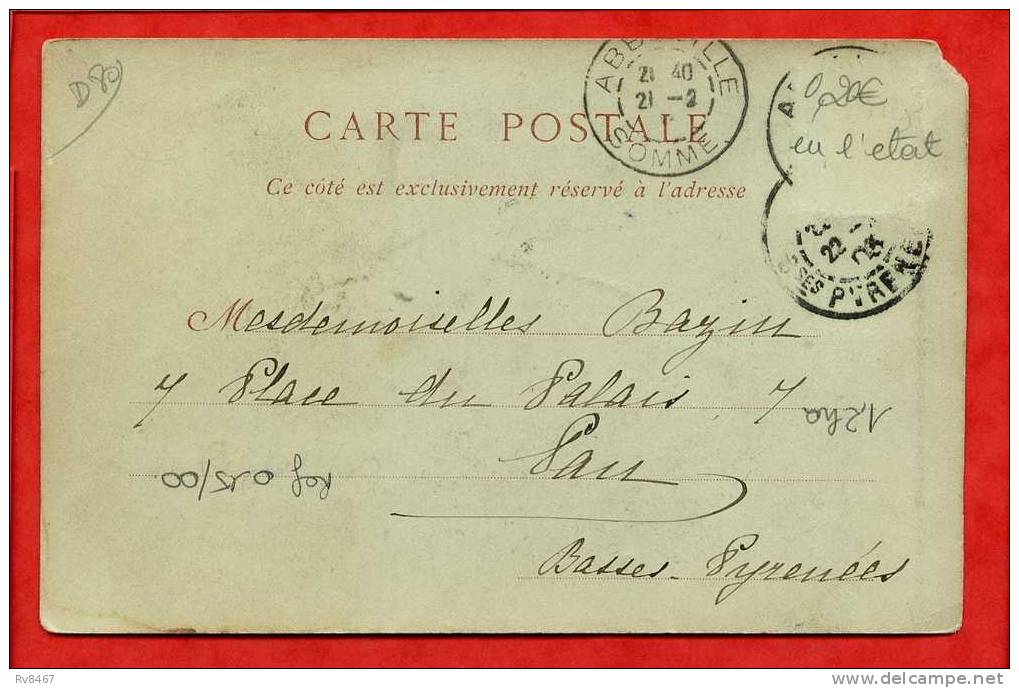 D80
ABBEVILLE
21 40
21 -2
SOMME
0,20€
en l'etat
CARTE POSTALE
Ce côté est exclusivement réservé à l'adresse
22
PYRENE
Mesdemoiselles Bazin
7 Place du Palais, 7
Pau
Basses-Pyrenées
12ha
Ref 015/00
Rv8467
www.delcampe.net